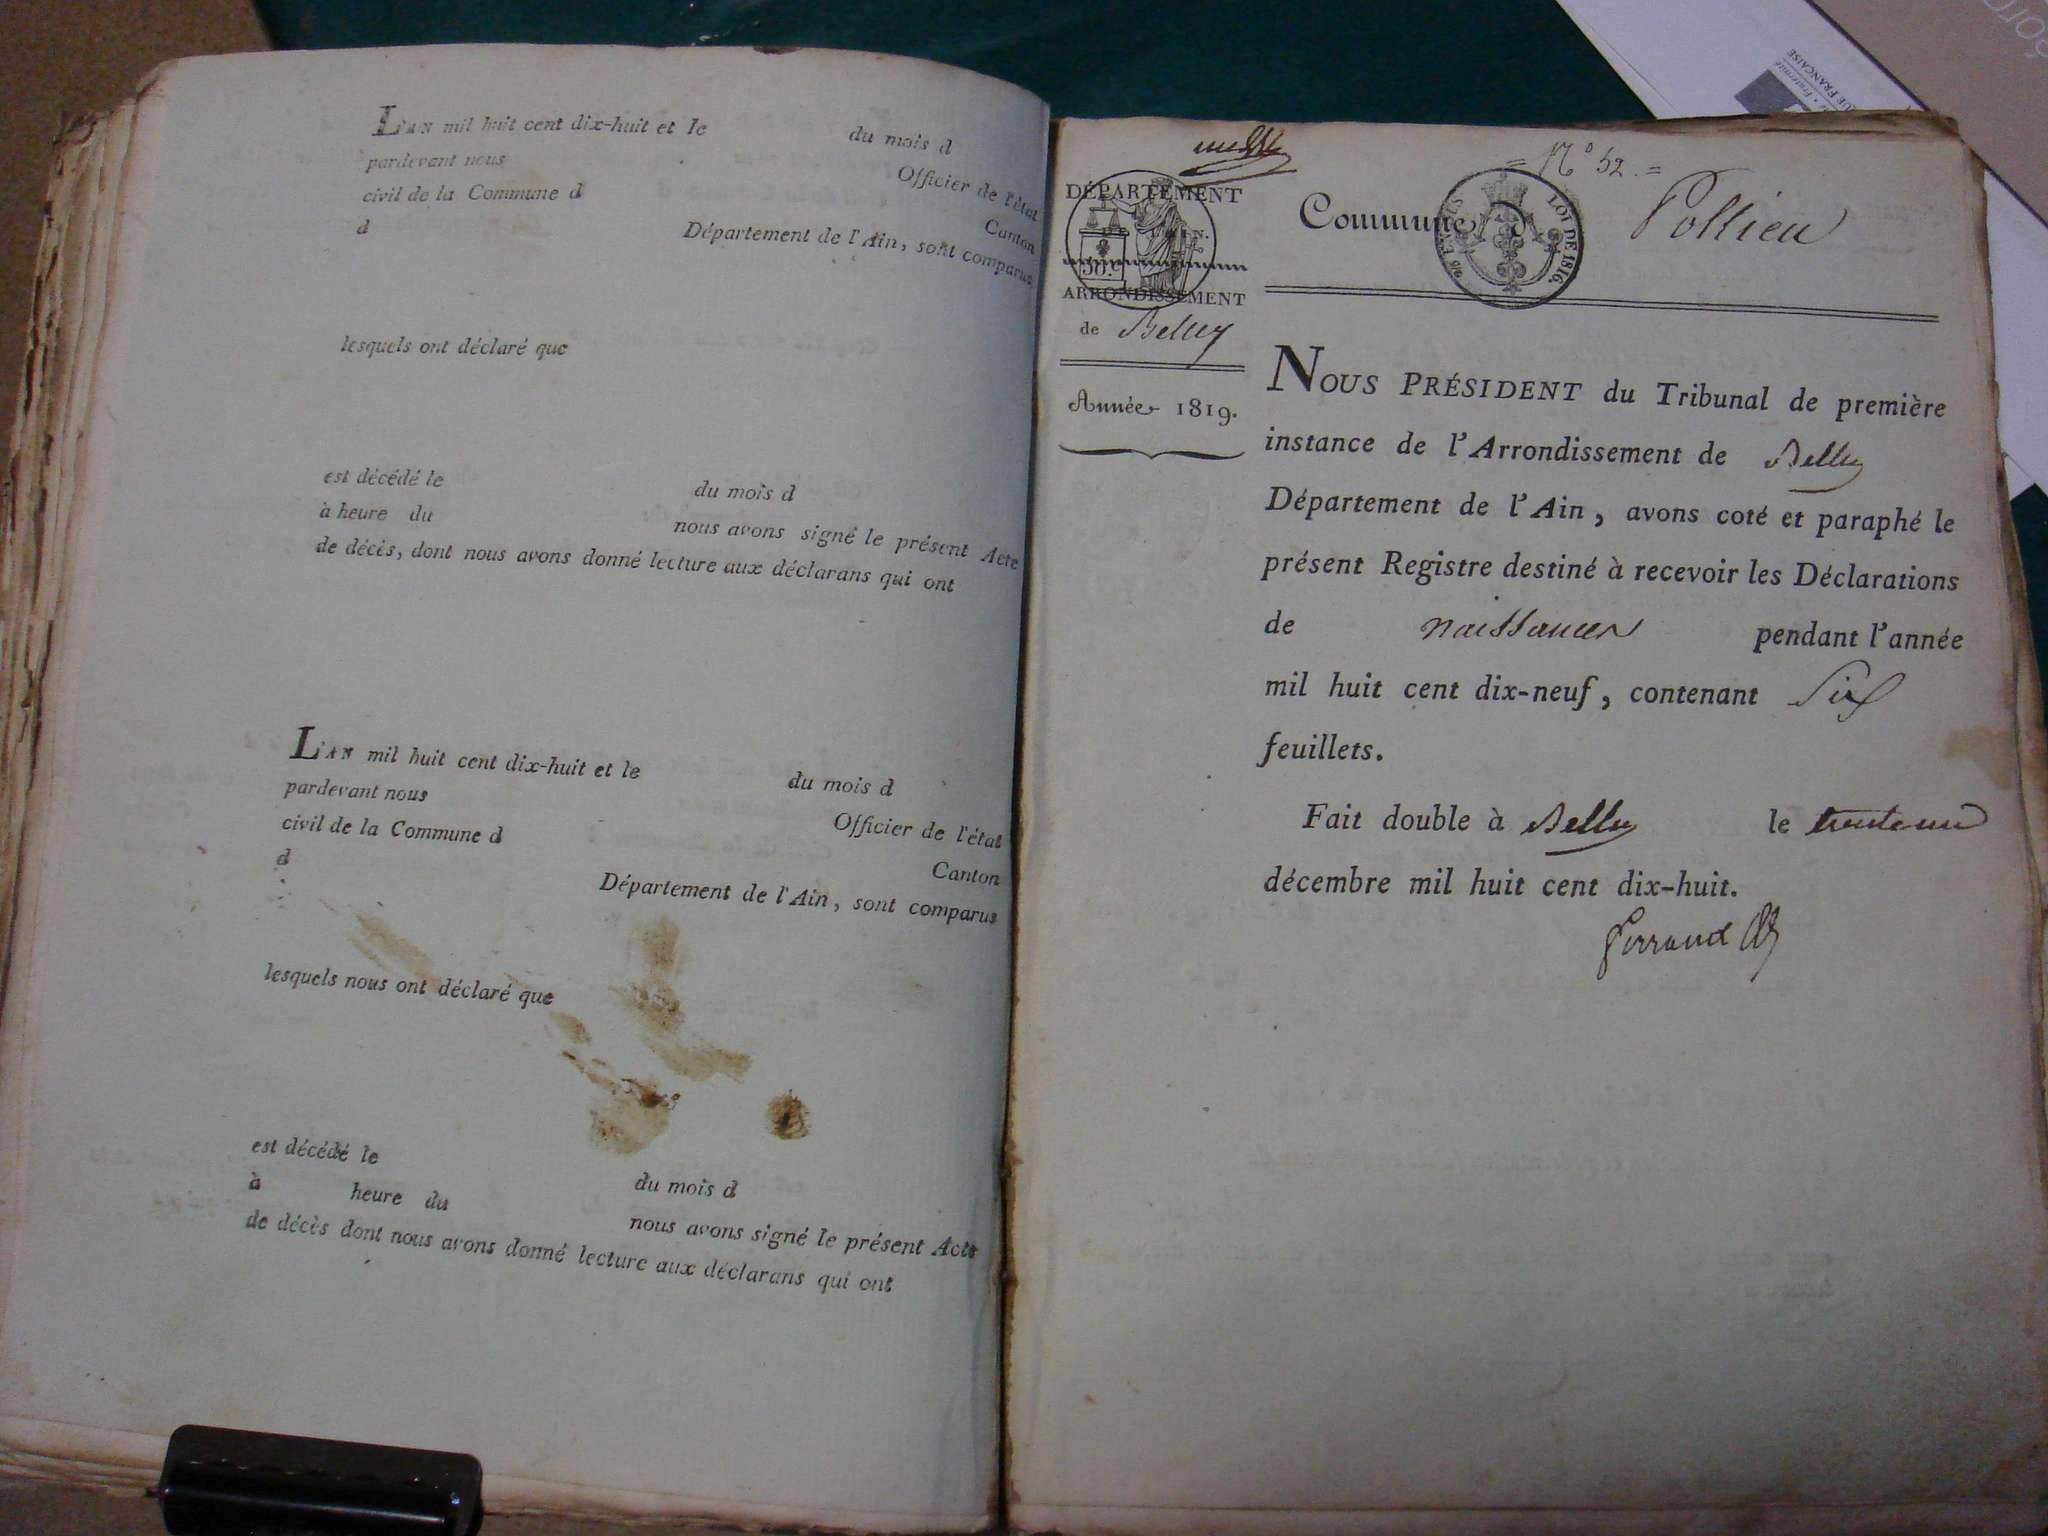 L'AN mil huit cent dix-huit et le du mois d
pardevant nous Officier de l'état
civil de la Commune d Canton
d Département de l'Ain, sont comparus
lesquels ont déclaré que
est décédé le du mois d
à heure du nous avons signé le présent Acte
de décès, dont nous avons donné lecture aux déclarans qui ont
L'AN mil huit cent dix-huit et le du mois d
pardevant nous Officier de l'état
civil de la Commune d Canton
d Département de l'Ain, sont comparus
lesquels nous ont déclaré que
est décédé le du mois d
à heure du nous avons signé le présent Acte
de décès dont nous avons donné lecture aux déclarans qui ont
= N° 52. =
DÉPARTEMENT
DE L'AIN.
50.c
ARRONDISSEMENT
de Belley
Année 1819.
Commune d Pollieu
LOI DE 1816.
NOUS PRÉSIDENT du Tribunal de première
instance de l'Arrondissement de Belley
Département de l'Ain, avons coté et paraphé le
présent Registre destiné à recevoir les Déclarations
de naissances pendant l'année
mil huit cent dix-neuf, contenant Six
feuillets.
Fait double à Belley le trente un
décembre mil huit cent dix-huit.
QUE FRANÇAISE